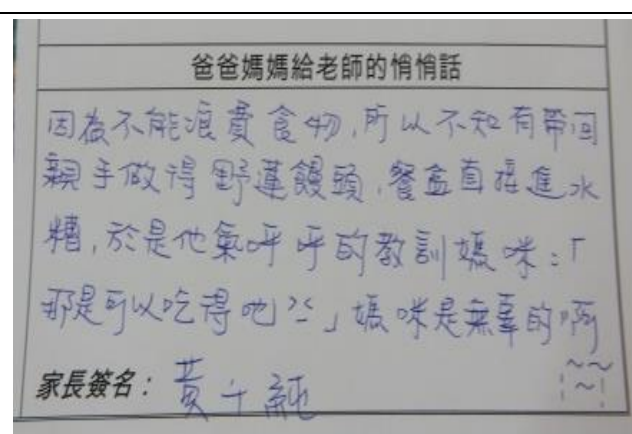 爸爸媽媽給老師的悄悄話
因為不能浪費食物,所以不知有帶回
親手做得野蓮饅頭,餐盒直接進水
糟,於是他氣呼呼的教訓媽咪:「
那是可以吃得吔><」媽咪是無辜的啊
~~
!~!
家長簽名:黃千純